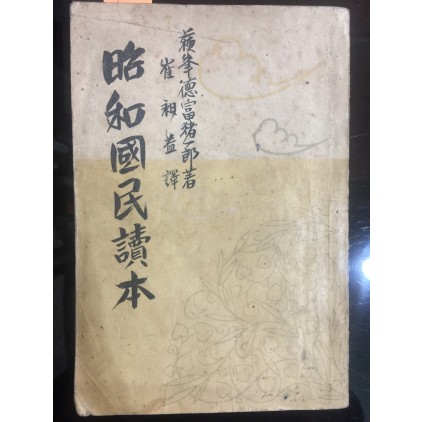 蘇峯德富猪一郎著
崔祖善譯
昭和國民讀本